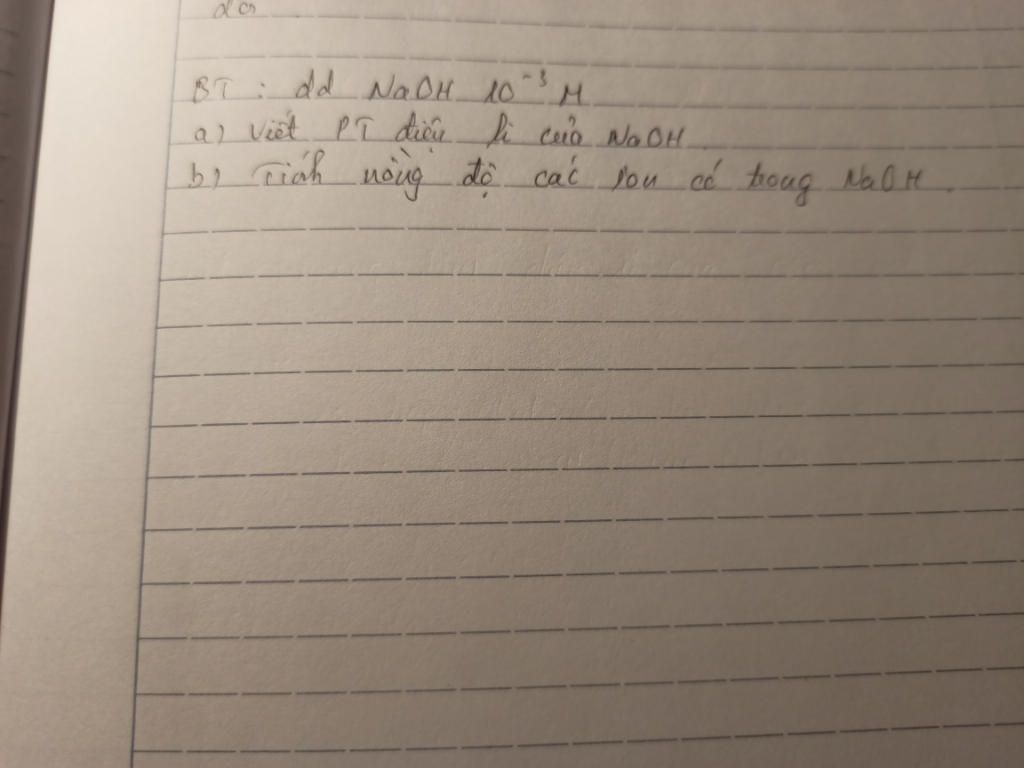 BT : dd NaOH 10⁻³ M
a) Viết PT điện li của NaOH.
b) Tính nồng độ các ion có trong NaOH.